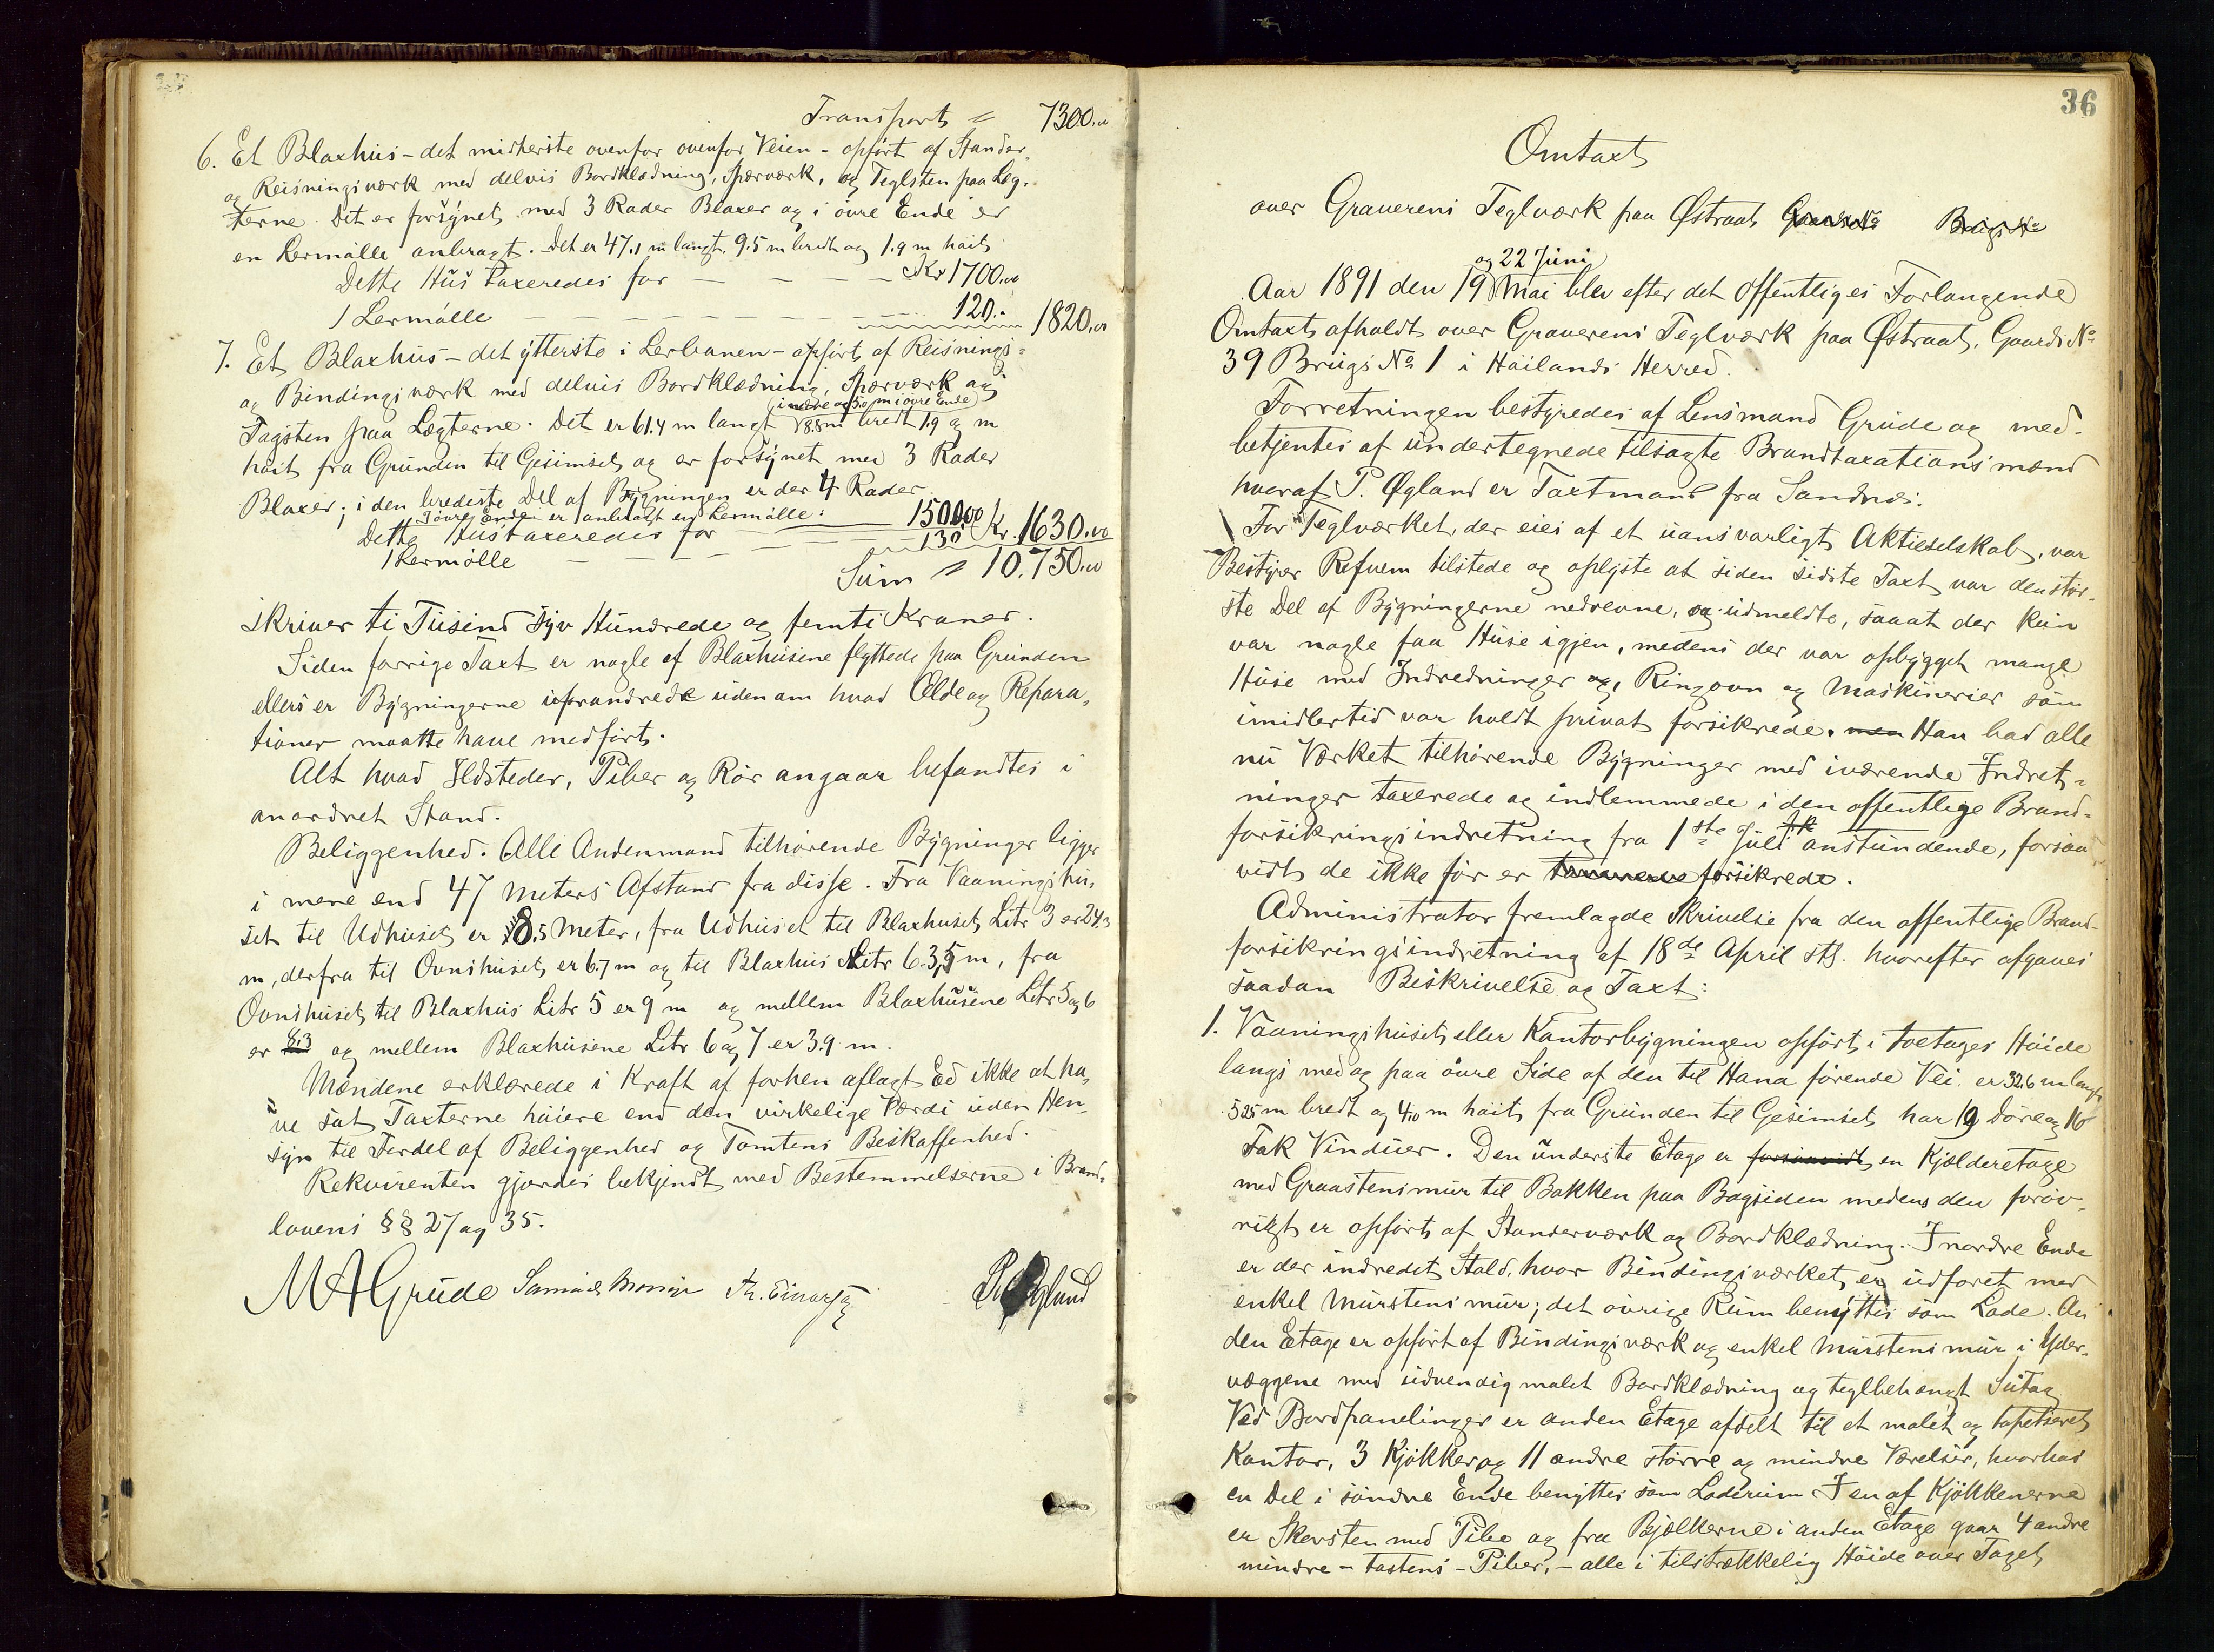 Transport = 7300.00
6. Et Blaxhus - det midterste ovenfor ovenfor Veien - opført af Stander-
og Reisningsværk med delvis Bordklædning, Spærværk, og Teglsten paa Læg-
terne. Det er forsynet med 3 Rader Blaxer og i øvre Ende er
en Lermølle anbragt. Det er 47.1 m langt, 9.5 m bredt og 1.9 m høit
Dette Hus taxeredes for — — — Kr 1700.00
1 Lermølle — — — 120.- 1820.00
7. Et Blaxhus - det ytterste i Lerbanen - opført af Reisnings-
og Bindingsværk med delvis Bordklædning, Spærværk og
i nedre og 5.0 m i øvre Ende
Tagsten paa Lægterne. Det er 61.4 m langt 8.8 m bredt 1.9 og m
høit fra Grunden til Gesimset og er forsynet med 3 Rader
Blaxer; i den bredeste Del af Bygningen er der 4 Rader
I øvre Ende er anbragt en Lermølle:
Dette Hus taxeredes for — 1500.00
1 Lermølle — — — 130 Kr. 1630.00
Sum = 10.750.00
skriver ti Tusind Syv Hundrede og femti Kroner.
Siden forrige Taxt er nogle af Blaxhusene flyttede paa Grunden
ellers er Bygningerne uforandrede udenom hvad Ælde og Repara-
tioner maatte have medført.
Alt hvad Ildsteder, Piber og Rør angaar befandtes i
anordnet Stand.
Beliggenhed. Alle Andenmand tilhørende Bygninger ligger
i mere end 47 Meters Afstand fra disse. Fra Vaaningshu-
set til Udhuset er 8.5 Meter, fra Udhuset til Blaxhuset Litr 3 er 24.3
m, derfra til Ovnshuset er 6.7 m og til Blaxhus Litr 6 3,5 m, fra
Ovnshuset til Blaxhus Litr 5 er 9 m og mellem Blaxhusene Litr 5 og 6
er 8.3 og mellem Blaxhusene Litr 6 og 7 er 3.9 m.
Mændene erklærede i Kraft af forhen aflagt Ed ikke at ha-
ve sat Taxterne høiere end den virkelige Værdi uden Hen-
syn til Fordel af Beliggenhed og Tomtens Beskaffenhed.
Rekvirenten gjordes bekjendt med Bestemmelserne i Brand-
lovens §§ 27 og 35.
MAGrude
36
Omtaxt
over Graverens Teglværk paa Østraat Gaards No Brugs No
og 22 Juni
Aar 1891 den 19 Mai blev efter det Offentliges Forlangende
Omtaxt afholdt over Graverens Teglværk paa Østraat, Gaards No
39 Brugs No 1 i Høilands Herred.
Forretningen bestyredes af Lensmand Grude og med-
betjentes af undertegnede tilsagte Brandtaxationsmænd
hvoraf P. Øgland er Taxtmand fra Sandnæs.
For Teglværket, der eies af et uansvarligt Aktieselskab, var
Bestyrer Refnem tilstede og oplyste at siden sidste Taxt var den stør-
ste Del af Bygningerne nedrevne, og udmeldte, saaat der kun
var nogle faa Huse igjen, medens der var opbygget mange
Huse med Indredninger og, Ringovn og Maskinerier som
imidlertid var holdt privat forsikrede. men Han bad alle
nu Værket tilhørende Bygninger med iværende Indret-
ninger taxerede og indlemmede i den offentlige Brand-
forsikringsindretning fra 1ste Juli anstundende, forsaa
vidt de ikke før er forsikrede.
Administrator fremlagde Skrivelse fra den offentlige Brand-
forsikringsindretning af 18de April sts. hvorefter afgaves
saadan Beskrivelse og Taxt:
1. Vaaningshuset eller Kontorbygningen opført i toetages Høide
langs med og paa øvre Side af den til Hana førende Vei. er 32,6 m langt
5.25 m bredt og 4,10 m høit fra Grunden til Gesimset har 19 Døre og 16
Fak Vinduer. Den underste Etage er forsaavidt en Kjælderetage
med Graastensmur til Bakken paa Bagsiden medens den forøv-
rigt er opført af Standerværk og Bordklædning. I nordre Ende
er der indredet Stald, hvor Bindingsværket er udforet med
enkel Murstensmur; det øvrige Rum benyttes som Lade. An
den Etage er opført af Bindingsværk og enkel Murstensmur i Yder-
væggene med udvendig malet Bordklædning og teglbehængt Sutag
Ved Bordpanelinger er anden Etage afdelt til et malet og tapetseret
Kontor, 3 Kjøkker og 11 andre større og mindre Værelser, hvorhos
en Del i søndre Ende benyttes som Laderum. I en af Kjøkkenerne
er Skorsten med Pibe og fra Bjælkerne i anden Etage gaar 4 andre
mindre - tostens - Piber, - alle i tilstrækkelig Høide over Taget